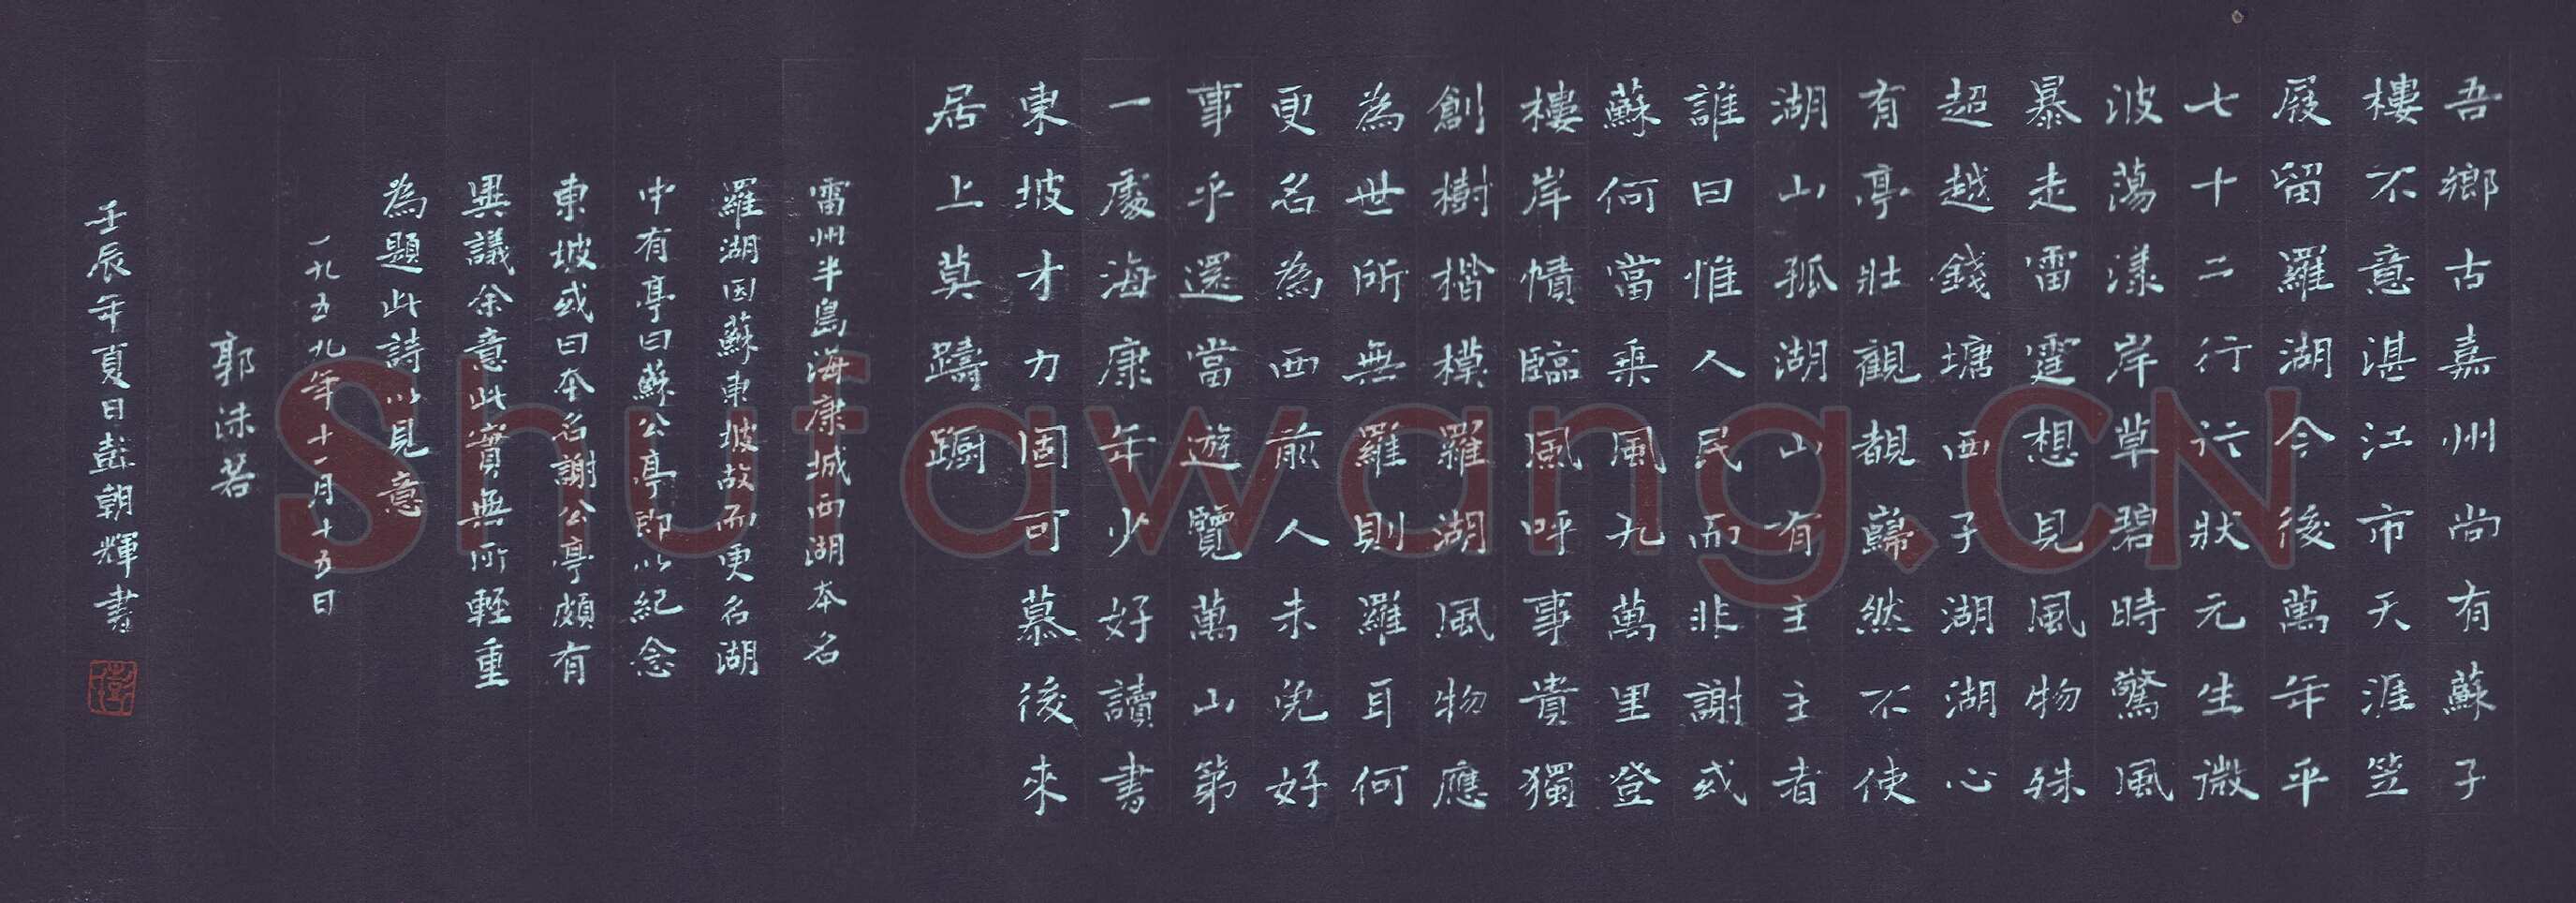 吾鄉古嘉州尚有蘇子
樓不意湛江市天涯笠
屐留羅湖今後萬年平
七十二行行狀元生微
波蕩漾岸草碧時驚風
暴走雷霆想見風物殊
超越錢塘西子湖湖心
有亭壯觀覩巋然不使
湖山孤湖山有主主者
誰曰惟人民而非謝或
蘇何當乘風九萬里登
樓岸幘臨風呼事貴獨
創樹楷模羅湖風物應
為世所無羅則羅耳何
更名為西前人未免好
事乎還當遊覽萬山第
一處海康年少好讀書
東坡才力固可慕後來
居上莫躊躕
雷州半島海康城西湖本名
羅湖因蘇東坡故而更名湖
中有亭曰蘇公亭即以紀念
東坡或曰本名謝公亭頗有
異議余意此實無所輕重
為題此詩以見意
一九五九年十一月十五日
郭沫若
壬辰年夏日彭朝輝書
彭
Shufawang.CN